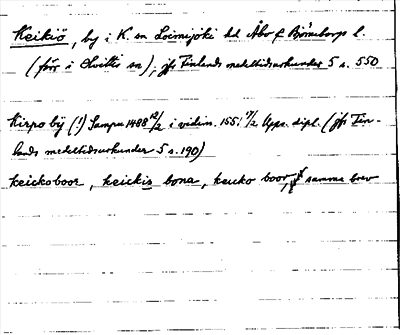 Keikiö, by i K. sn Loimijoki hd Åbo & Björneborgs l.
(förr i Huittis sn), jfr Finlands medeltidsurkunder 5 s. 550
Kirpo bÿ (!) Sampu 1488 12/2 i vidim. 1551 7/2 Upps. dipl. (jfr Fin-
lands medeltidsurkunder 5 s. 190)
keickoboor, keickis bona, keicko boor, samma brev